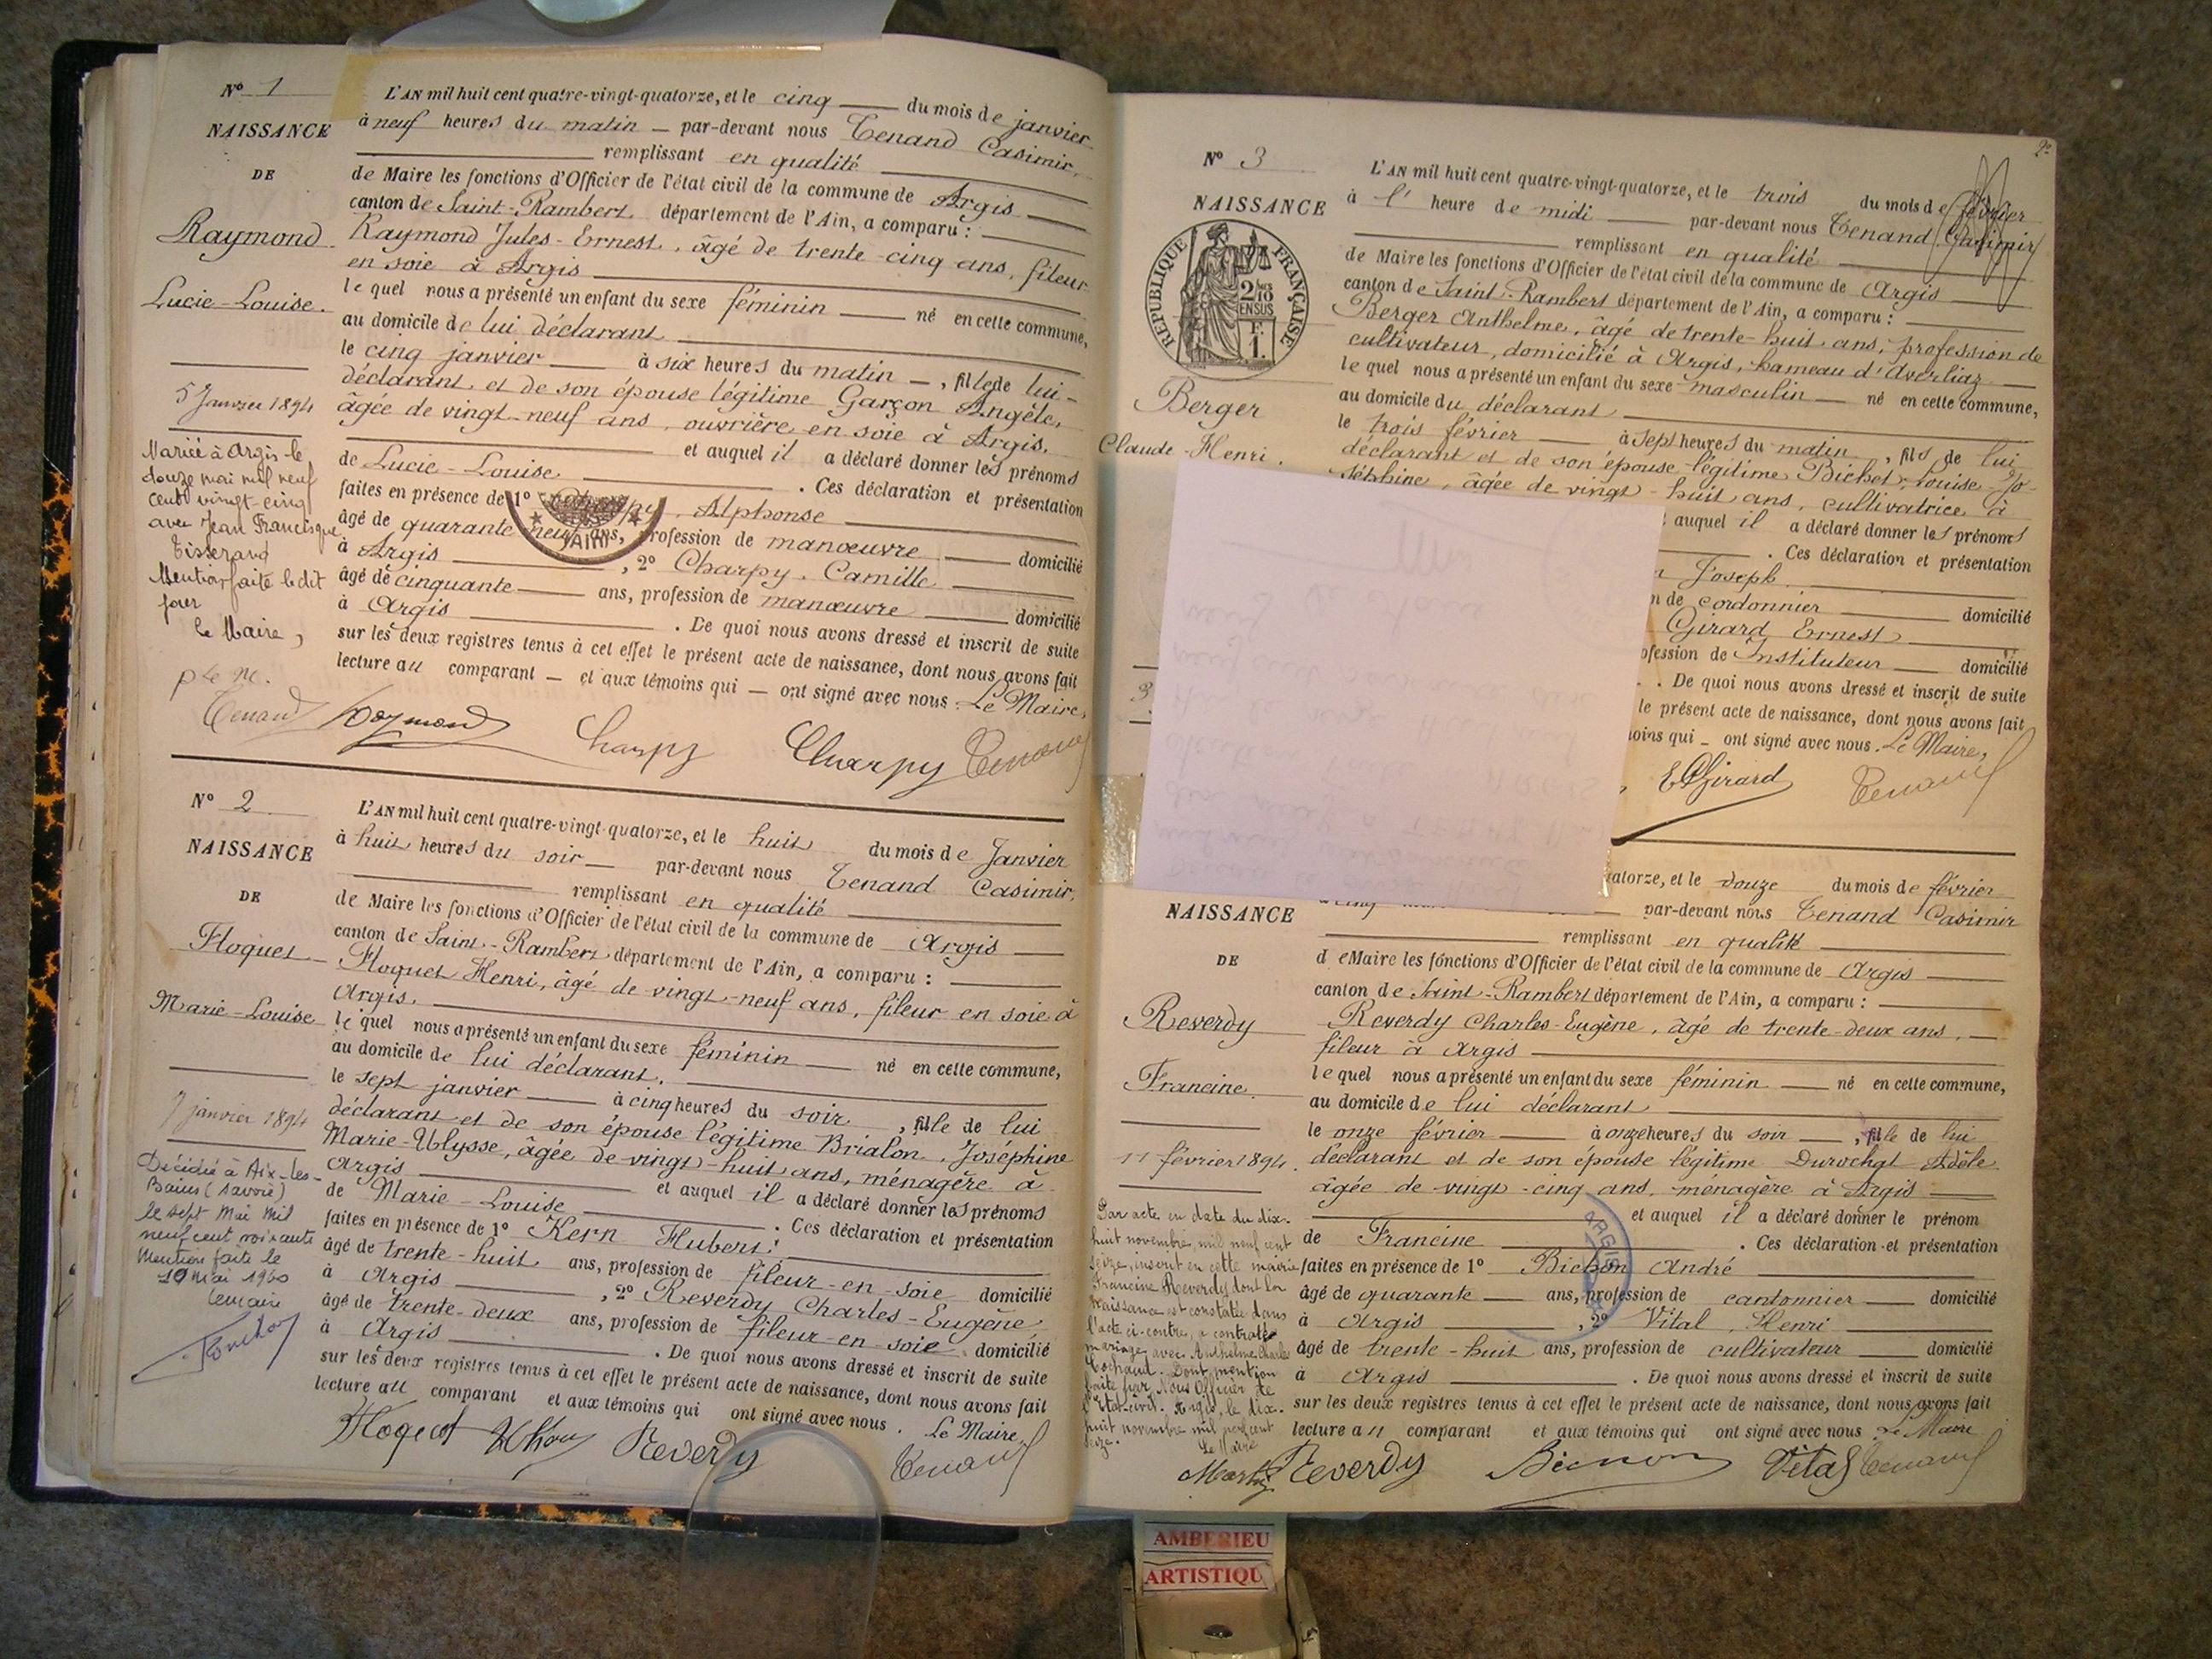 Nº 1
NAISSANCE
DE
Raymond
Lucie-Louise.
5 Janvier 1894
Mariée à Argis le
douze mai mil neuf
cent vingt-cinq
avec Jean Francisque
Tisserand
Mention faite le dit
jour
Le Maire,
Tenand
L'AN mil huit cent quatre-vingt-quatorze, et le cinq du mois de janvier
à neuf heures du matin par-devant nous Tenand Casimir,
remplissant en qualité
de Maire les fonctions d'Officier de l'état civil de la commune de Argis
canton de Saint-Rambert département de l'Ain, a comparu :
Raymond Jules-Ernest, âgé de trente-cinq ans, fileur
en soie à Argis
lequel nous a présenté un enfant du sexe féminin né en cette commune,
au domicile de lui déclarant
le cinq janvier à six heures du matin, fille de lui
déclarant et de son épouse légitime Garçon Angèle,
âgée de vingt-neuf ans, ouvrière en soie à Argis.
et auquel il a déclaré donner les prénoms
de Lucie-Louise . Ces déclaration et présentation
faites en présence de 1º Alphonse
âgé de quarante neuf ans, profession de manœuvre domicilié
à Argis , 2º Charpy, Camille
âgé de cinquante ans, profession de manœuvre domicilié
à Argis . De quoi nous avons dressé et inscrit de suite
sur les deux registres tenus à cet effet le présent acte de naissance, dont nous avons fait
lecture au comparant et aux témoins qui ont signé avec nous. Le Maire,
Raymond Charpy Charpy Tenand
Nº 2
NAISSANCE
DE
Floquet
Marie-Louise
7 janvier 1894
Décédée à Aix-les-
Bains (Savoie)
le sept Mai mil
neuf cent soixante
Mention faite le
10 Mai 1960
Le Maire
L'AN mil huit cent quatre-vingt-quatorze, et le huit du mois de Janvier
à huit heures du soir par-devant nous Tenand Casimir,
remplissant en qualité
de Maire les fonctions d'Officier de l'état civil de la commune de Argis
canton de Saint-Rambert département de l'Ain, a comparu :
Floquet Henri, âgé de vingt-neuf ans, fileur en soie à
Argis.
lequel nous a présenté un enfant du sexe féminin né en cette commune,
au domicile de lui déclarant.
le sept janvier à cinq heures du soir, fille de lui
déclarant et de son épouse légitime Brialon, Joséphine
Marie-Ulysse, âgée de vingt-huit ans, ménagère à
Argis et auquel il a déclaré donner les prénoms
de Marie-Louise . Ces déclaration et présentation
faites en présence de 1º Kern Hubert
âgé de trente-huit ans, profession de fileur-en-soie domicilié
à Argis , 2º Reverdy Charles-Eugène
âgé de trente-deux ans, profession de fileur-en-soie domicilié
à Argis . De quoi nous avons dressé et inscrit de suite
sur les deux registres tenus à cet effet le présent acte de naissance, dont nous avons fait
lecture au comparant et aux témoins qui ont signé avec nous. Le Maire,
Reverdy Tenand
2e
Nº 3
NAISSANCE
REPUBLIQUE FRANÇAISE
2/10 EN SUS
Berger
Claude-Henri.
3
L'AN mil huit cent quatre-vingt-quatorze, et le trois du mois de février
à l' heure de midi par-devant nous Tenand Casimir
remplissant en qualité
de Maire les fonctions d'Officier de l'état civil de la commune de Argis
canton de Saint-Rambert département de l'Ain, a comparu :
Berger Anthelme, âgé de trente-huit ans, profession de
cultivateur, domicilié à Argis, hameau d'Averliaz
lequel nous a présenté un enfant du sexe masculin né en cette commune,
au domicile du déclarant
le trois février à sept heures du matin, fils de lui
déclarant et de son épouse légitime Bichet, Louise-Jo-
séphine, âgée de vingt-huit ans, cultivatrice à
auquel il a déclaré donner les prénoms
. Ces déclaration et présentation
Joseph
de cordonnier domicilié
Girard Ernest
profession de Instituteur domicilié
. De quoi nous avons dressé et inscrit de suite
le présent acte de naissance, dont nous avons fait
témoins qui ont signé avec nous. Le Maire,
E Girard Tenand
NAISSANCE
DE
Reverdy
Francine.
11 février 1894.
Par acte en date du dix-
huit novembre mil neuf cent
seize, inscrit en cette mairie
Francine Reverdy dont la
naissance est constatée dans
l'acte ci-contre, a contracté
mariage avec Anthelme Charles
Cochaud. Dont mention
faite par Nous Officier de
l'Etat-civil. Argis, le dix-
huit novembre mil neuf cent
seize.
Le Maire
quatorze, et le douze du mois de février
par-devant nous Tenand Casimir
remplissant en qualité
de Maire les fonctions d'Officier de l'état civil de la commune de Argis
canton de Saint-Rambert département de l'Ain, a comparu :
Reverdy Charles-Eugène, âgé de trente-deux ans,
fileur à Argis
lequel nous a présenté un enfant du sexe féminin né en cette commune,
au domicile de lui déclarant
le onze février à onze heures du soir, fille de lui
déclarant et de son épouse légitime Durochat Adèle
âgée de vingt-cinq ans, ménagère à Argis
et auquel il a déclaré donner le prénom
de Francine . Ces déclaration et présentation
faites en présence de 1º Bichon André
âgé de quarante ans, profession de cantonnier domicilié
à Argis , 2º Vital, Henri
âgé de trente-huit ans, profession de cultivateur domicilié
à Argis . De quoi nous avons dressé et inscrit de suite
sur les deux registres tenus à cet effet le présent acte de naissance, dont nous avons fait
lecture au comparant et aux témoins qui ont signé avec nous Le Maire
Reverdy Bichon Vital Tenand
AMBERIEU
ARTISTIQU